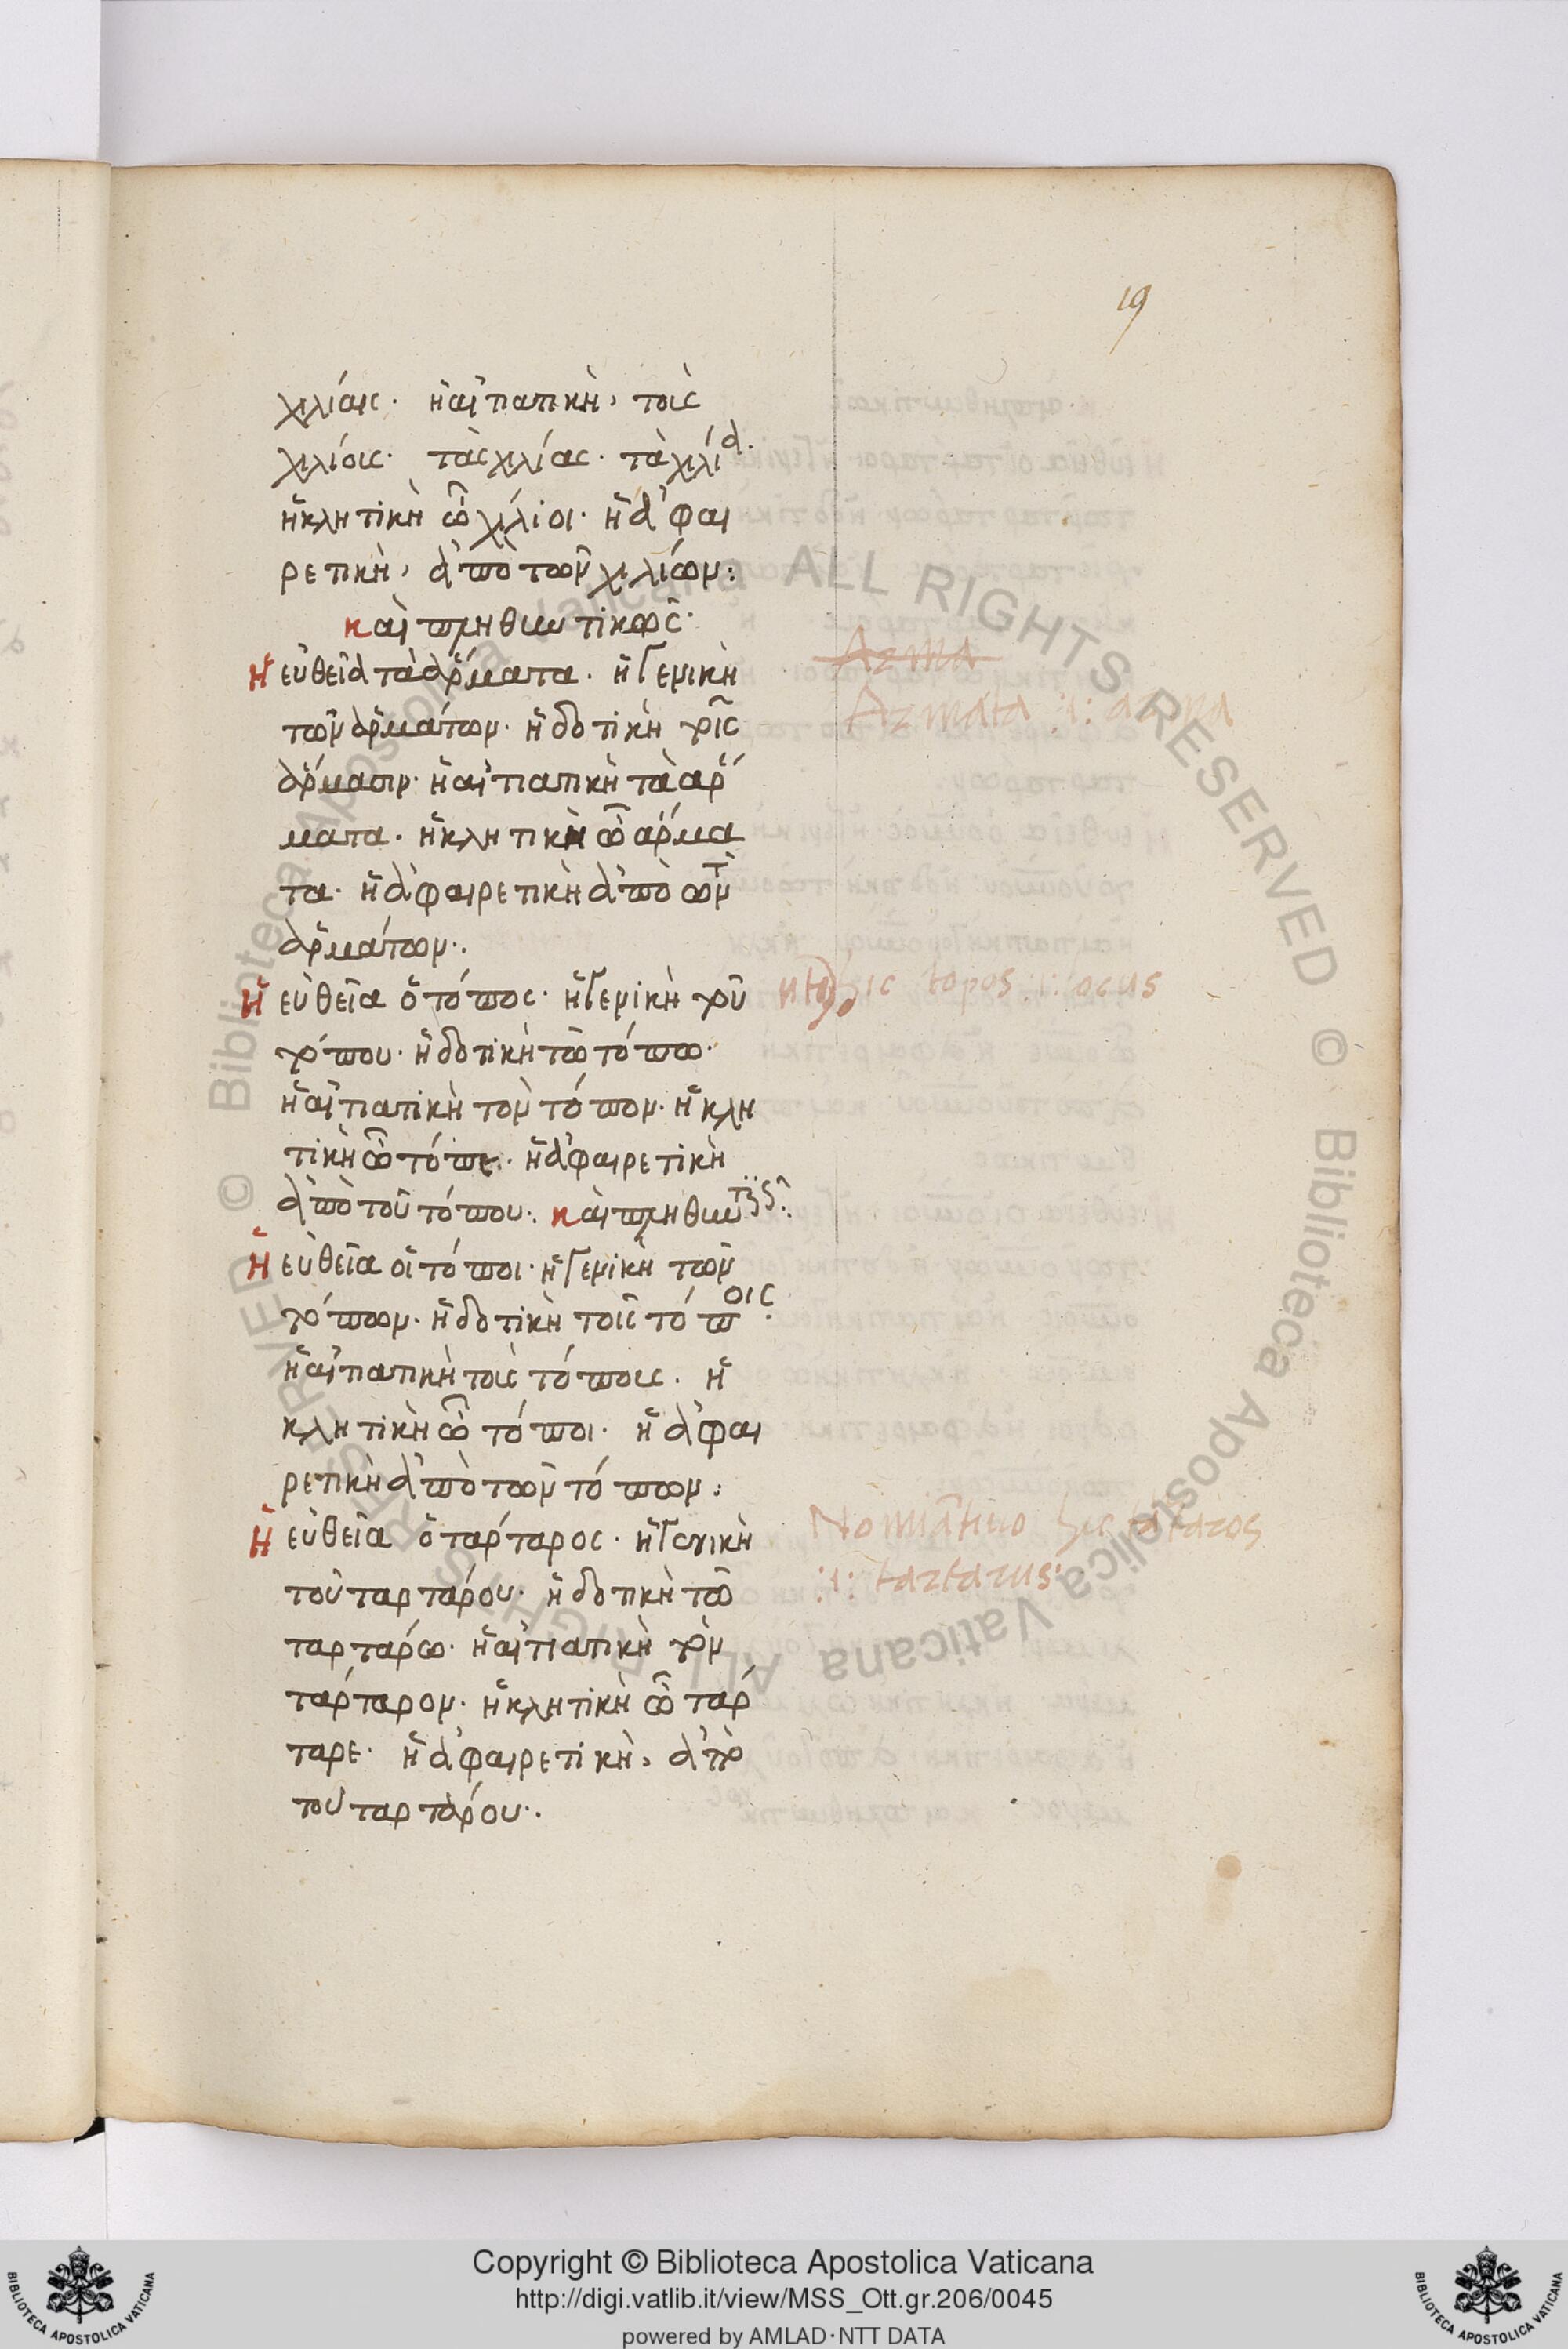 19
χιλίαις· ἡ αἰτιατικὴ, τοὶς
χιλίοις· τὰς χιλίας· τὰ χιλία·
ἡ κλητικὴ ὦ χίλιοι· ἡ ἀφαι
ρετικὴ, ἀπὸ τῶν χιλίων:
καὶ πληθυντικῶς·
Ἡ εὐθεῖα τὰ ἅρματα· ἡ γενικὴ
τῶν ἁρμάτων· ἡ δοτικὴ τοῖς
ἅρμασιν· ἡ αἰτιατικὴ τὰ ἅρ
ματα· ἡ κλητικὴ ὦ ἅρμα
τα· ἡ ἀφαιρετικὴ ἀπὸ τῶν
ἁρμάτων:.
Azma
Azmata :i: azma
Ἡ εὐθεῖα ὁ τόπος· ἡ γενικὴ τοῦ
τόπου· ἡ δοτικὴ τῶ τόπω·
ἡ αἰτιατικὴ τὸν τόπον· ἡ κλη
τικὴ ὦ τόπε· ἡ ἀφαιρετικὴ
ἀπὸ τοῦ τόπου:. καὶ πληθυντικῶς:.
hic topos :i: ocus
Ἡ εὐθεῖα οἱ τόποι· ἡ γενικὴ τῶν
τόπων· ἡ δοτικὴ τοῖς τόποις·
ἡ αἰτιατικὴ τοὶς τόποις· ἡ
κλητικὴ ὦ τόποι· ἡ ἀφαι
ρετικὴ ἀπὸ τῶν τόπων:
Ἡ εὐθεῖα ὁ τάρταρος· ἡ γενικὴ
τοῦ ταρτάρου· ἡ δοτικὴ τῶ
ταρτάρω· ἡ αἰτιατικὴ τὸν
τάρταρον· ἡ κλητικὴ ὦ τάρ
ταρε· ἡ ἀφαιρετικὴ, ἀπὸ
τοῦ ταρτάρου:.
hic
:i: taztazus:
Copyright © Biblioteca Apostolica Vaticana
http://digi.vatlib.it/view/MSS_Ott.gr.206/0045
powered by AMLAD·NTT DATA
BIBLIOTECA APOSTOLICA VATICANA
BIBLIOTECA APOSTOLICA VATICANA
© Biblioteca Apostolica Vaticana ALL RIGHTS RESERVED © Biblioteca Apostolica Vaticana ALL RIGHTS RESERVED